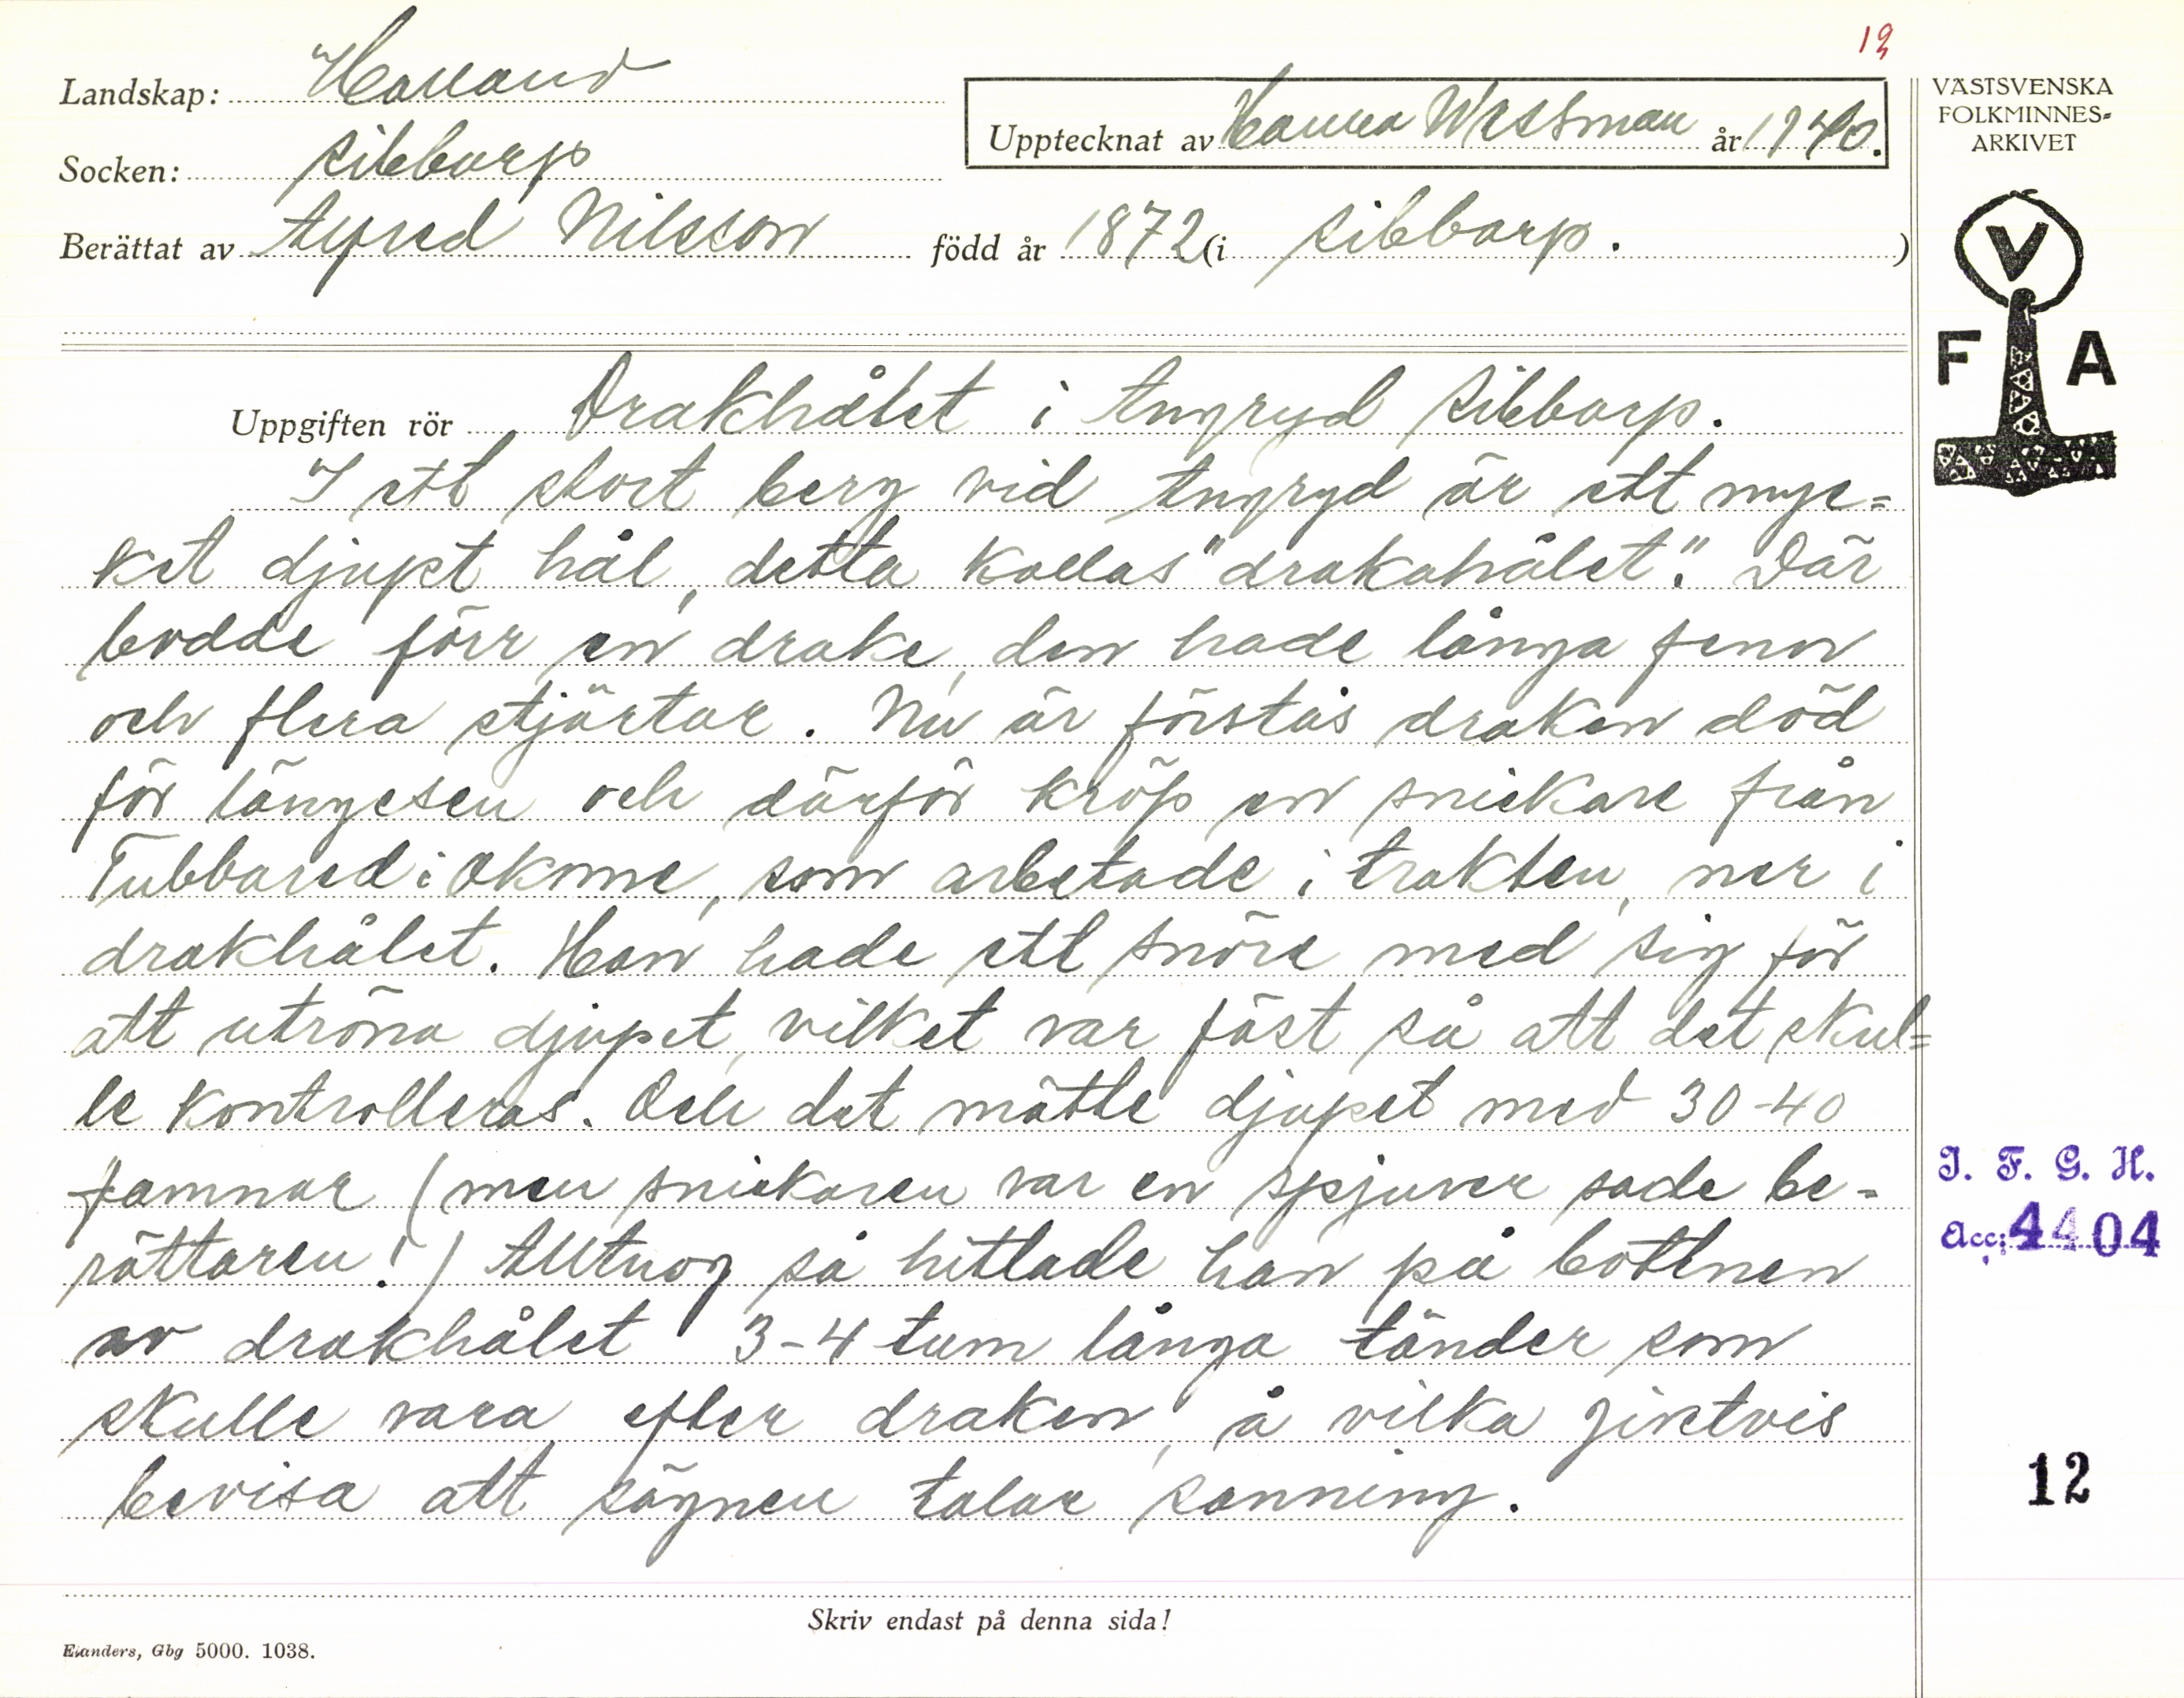 12
Landskap: Halland
Upptecknat av Hanna Wessman år 1940.
Socken: Sibbarp
Berättat av Alfred Nilsson född år 1872 (i Sibbarp. )
VÄSTSVENSKA
FOLKMINNES=
ARKIVET
V
F A
Uppgiften rör Drakhålet i Angryd Sibbarp.
I ett stort berg vid Angryd är ett myc=
ket djupt hål, detta kallas "drakahålet". Där
bodde förr en drake, den hade långa fenor
och flera stjärtar. Nu är förstås draken död
för längesen och därför kröp en snickare från
Tubbared i Okome, som arbetade i trakten, ner i
drakhålet. Han hade ett snöre med sig för
att utröna djupet, vilket var fäst så att det skul=
le kontrolleras. Och det mätte djupet med 30-40
famnar (men snickaren var en spjuver sade be-
rättaren!) Alltnog så hittade han på bottnen
av drakhålet 3-4 tum långa tänder som
skulle vara efter draken, å vilka givetvis
bevisa att sägnen talar sanning.
I. F. G. H.
Acc: 4404
12
Skriv endast på denna sida!
Elanders, Gbg 5000. 1038.